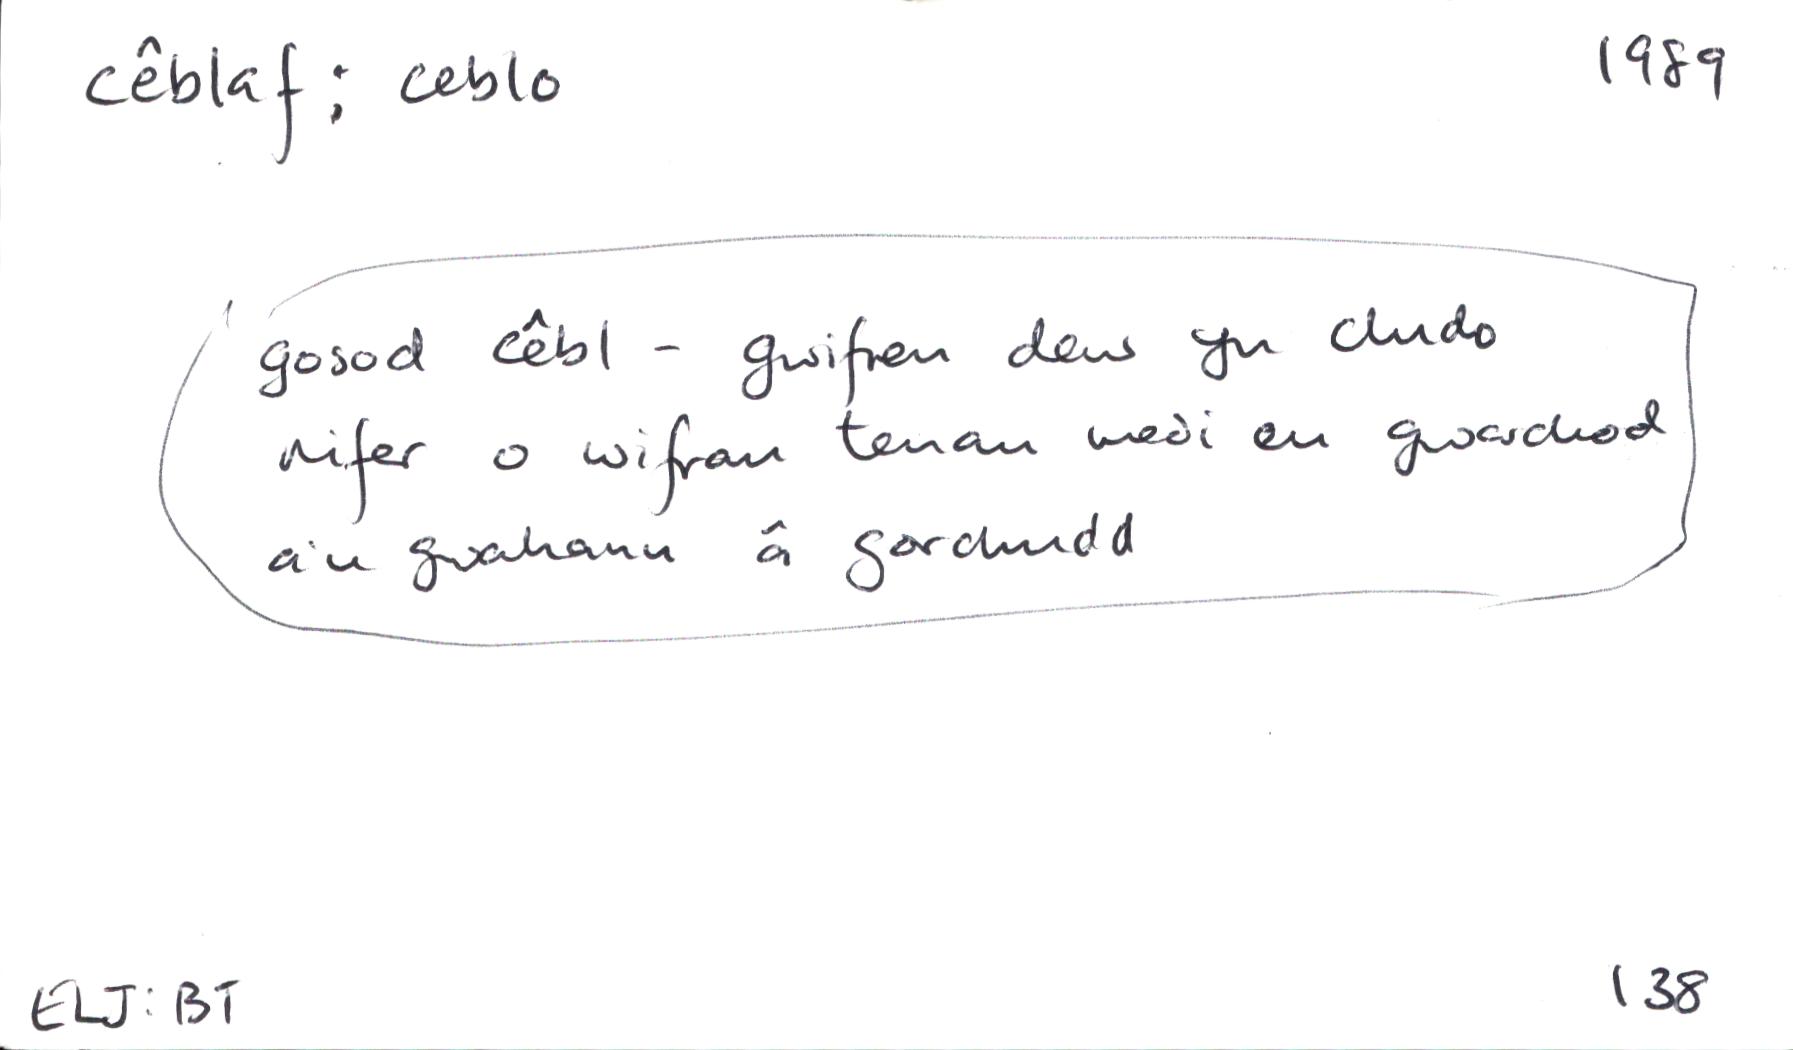 cêblaf; ceblo
1989
gosod cêbl - gwifren dew yn cludo
nifer o wifrau tenau wedi eu gwarchod
a'u gwahanu â gorchudd
ELJ: BT
138